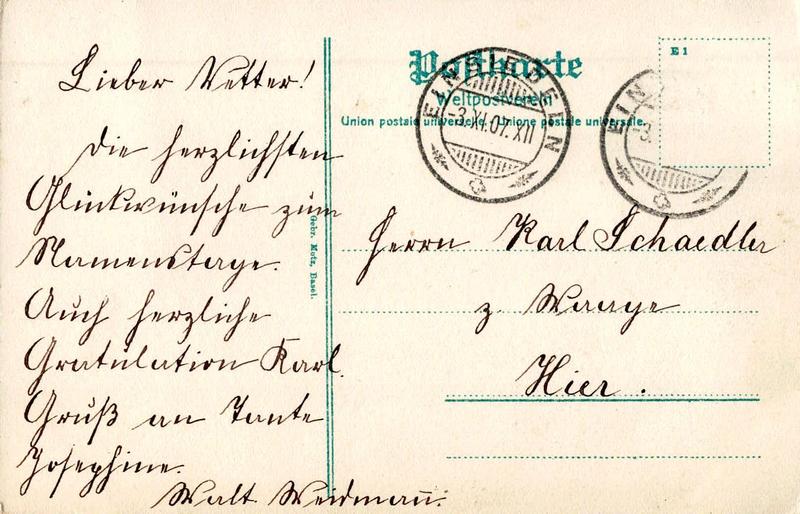 Postkarte
Weltpostverein
Union postale universelle. Unione postale universale.
E 1
EINSIEDELN
-3.XI.07.XII
EIN
-3.
Lieber Vetter!
Die herzlichsten
Glückwünsche zum
Namenstage.
Auch herzliche
Gratulation Karl.
Gruß an Tante
Josephine.
Walt. Weidmann.
Gebr. Metz, Basel.
Herrn Karl Schaedler
z. Waage
Hier.